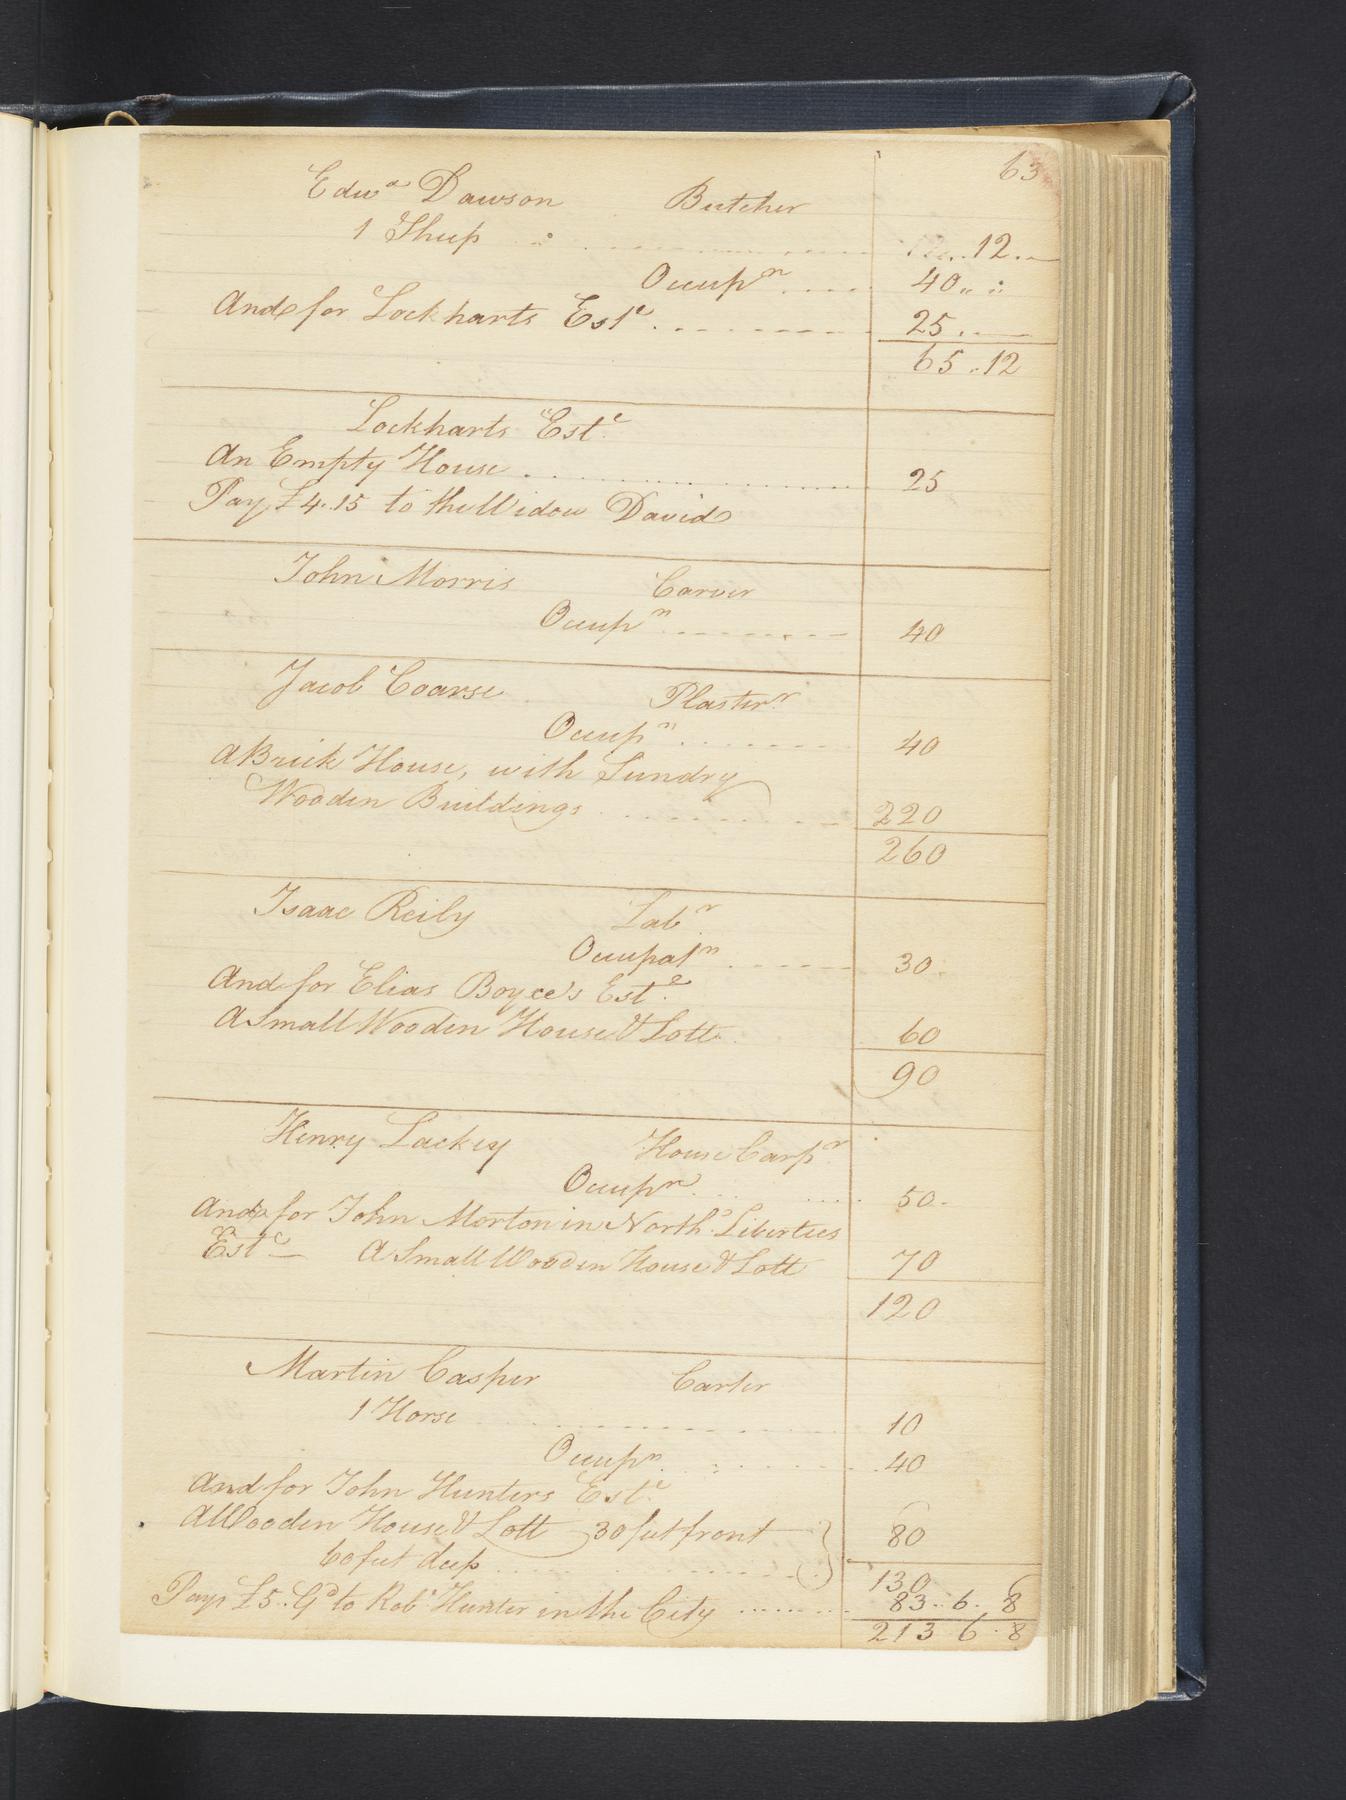 63
Edwd Dawson Butcher
1 Sheep 12
Occupn 40
And for Lockharts Este 25
65..12
Lockharts Este
An Empty House 25
Pay £4..15 to the Widow David
John Morris Carver
Occupn 40
Jacob Coarse Plasterr
Occupn 40
A Brick House, with Sundry
Wooden Buildings 220
260
Isaac Reily Labr
Occupatn 30
And for Elias Boyce's Este
A Small Wooden House & Lott 60
90
Henry Lackey House Carpr
Occupn 50
And for John Morton in North.s Liberties
Este A Small Wooden House & Lott 70
120
Martin Casper Carter
1 Horse 10
Occupn 40
And for John Hunters Este
A Wooden House & Lott 30 feet front 80
60 feet deep 130
Pays £5..Gd to Robt Hunter in the City 83..6..8
213 6..8